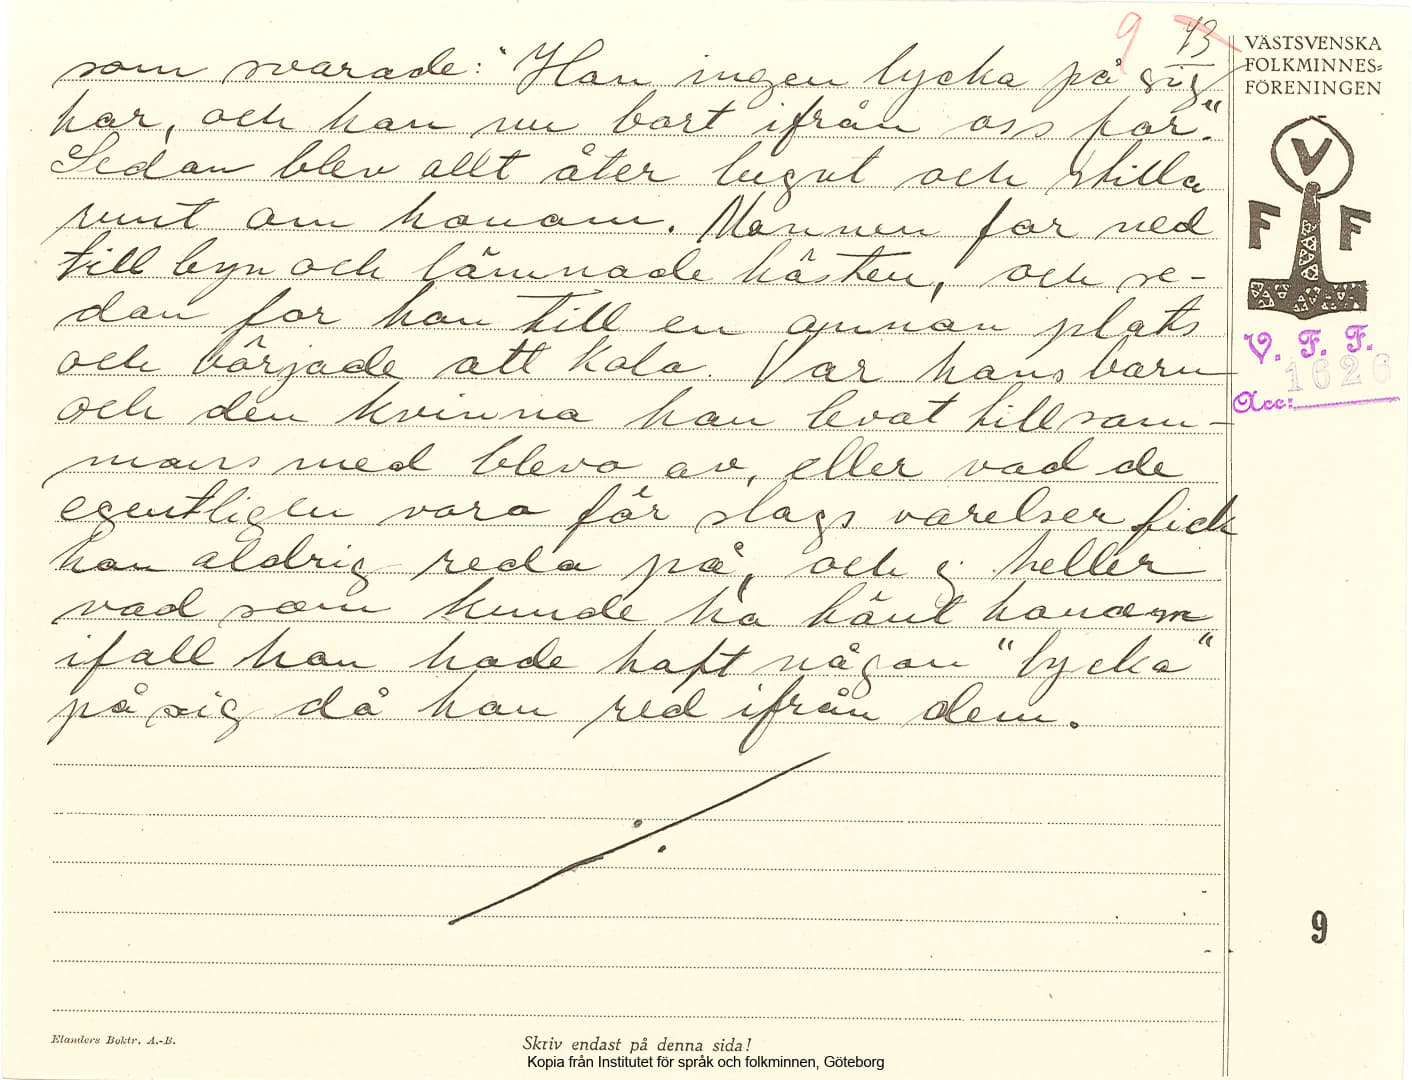 9 43
som svarade: "Han ingen lycka på sig
har, och han nu bort ifrån oss far."
Sedan blev allt åter lugnt och stilla
runt om honom. Mannen far ned
till byn och lämnade hästen, och se-
dan for han till en annan plats
och började att kola. Var hans barn
och den kvinna han levat tillsam-
mans med blevo av, eller vad de
egentligen voro för slags varelser fick
han aldrig reda på, och ej heller
vad som kunde ha hänt honom
ifall han hade haft någon "lycka"
på sig då han red ifrån dem.
VÄSTSVENSKA
FOLKMINNES=
FÖRENINGEN
V
F F
V. F. F.
1626
Acc:
9
Elanders Boktr. A.-B.
Skriv endast på denna sida!
Kopia från Institutet för språk och folkminnen, Göteborg